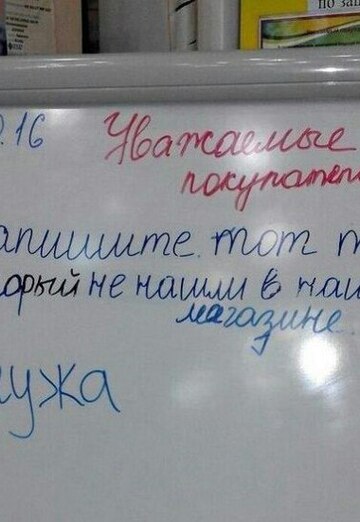 по за
.16 Уважаемые
покупател
апишите тот т
орый не нашли в наш
магазине.
ужа